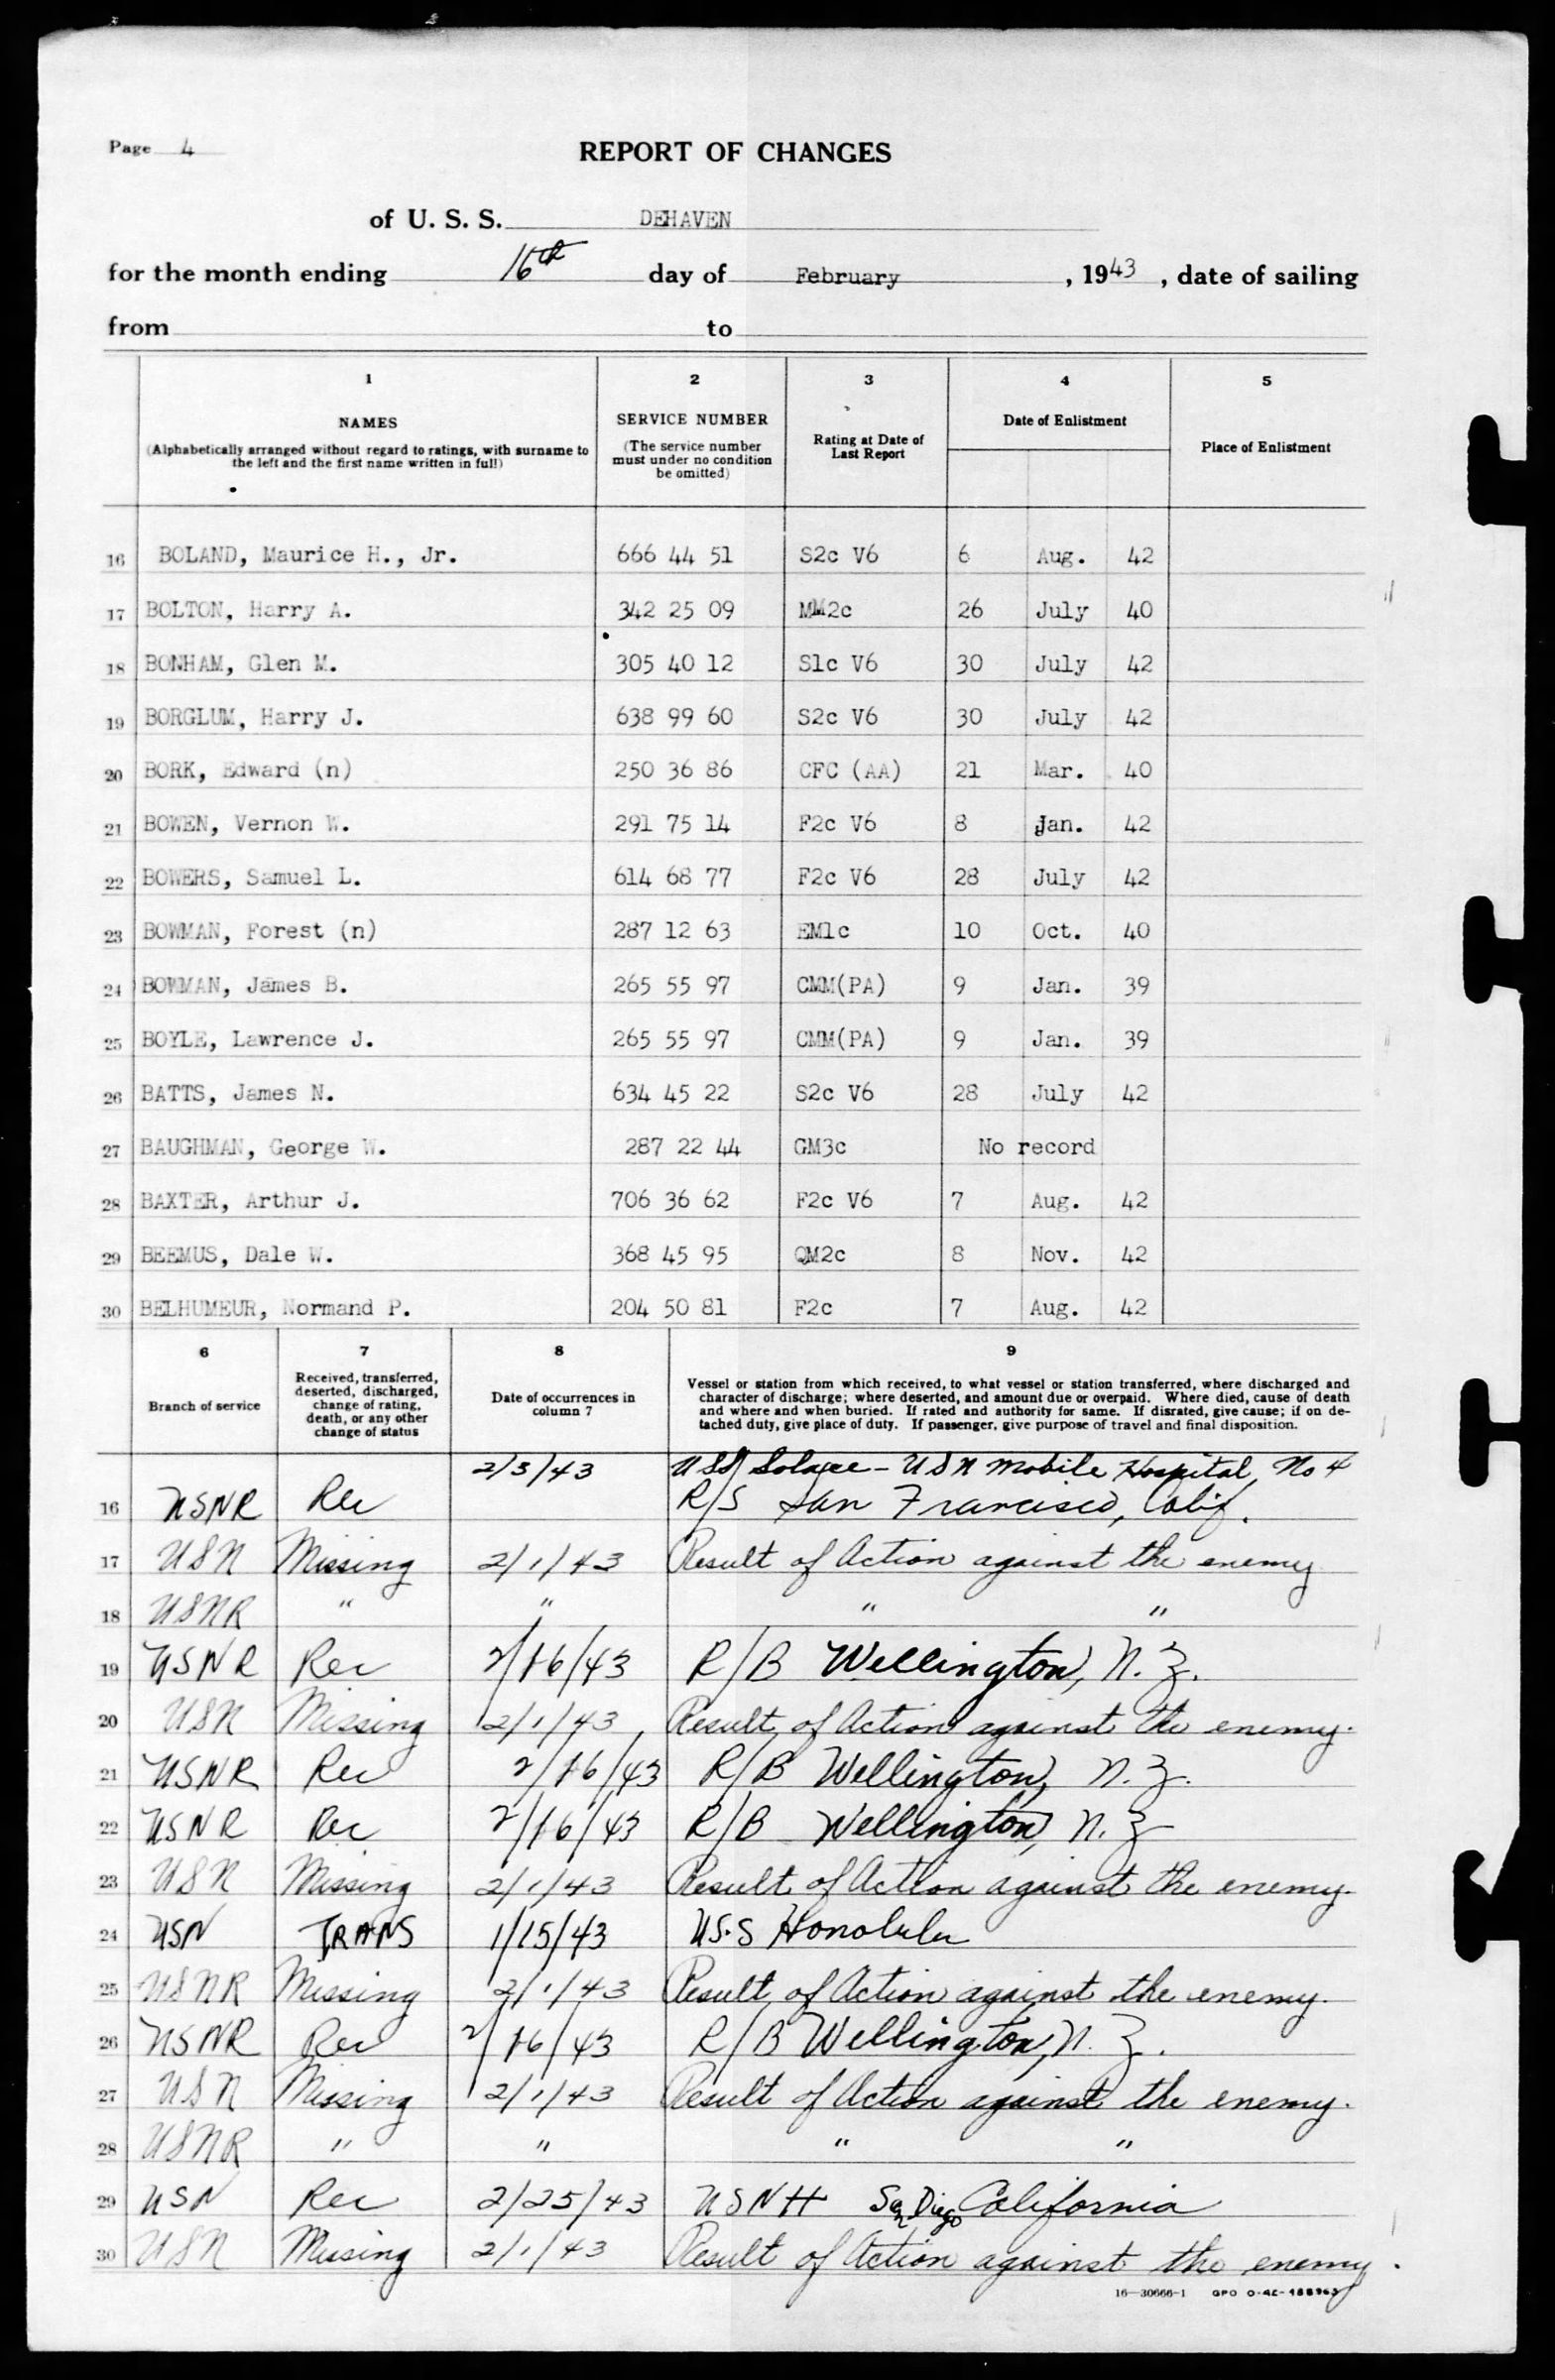 Page 4
REPORT OF CHANGES
of U. S. S. DEHAVEN
for the month ending 16th day of February , 1943 , date of sailing
from to
1 2 3 4 5
NAMES
(Alphabetically arranged without regard to ratings, with surname to
the left and the first name written in full)
SERVICE NUMBER
(The service number
must under no condition
be omitted)
Rating at Date of
Last Report
Date of Enlistment
Place of Enlistment
16 BOLAND, Maurice H., Jr. 666 44 51 S2c V6 6 Aug. 42
17 BOLTON, Harry A. 342 25 09 MM2c 26 July 40
18 BONHAM, Glen M. 305 40 12 S1c V6 30 July 42
19 BORGLUM, Harry J. 638 99 60 S2c V6 30 July 42
20 BORK, Edward (n) 250 36 86 CFC (AA) 21 Mar. 40
21 BOWEN, Vernon W. 291 75 14 F2c V6 8 Jan. 42
22 BOWERS, Samuel L. 614 68 77 F2c V6 28 July 42
23 BOWMAN, Forest (n) 287 12 63 EM1c 10 Oct. 40
24 BOWMAN, James B. 265 55 97 CMM(PA) 9 Jan. 39
25 BOYLE, Lawrence J. 265 55 97 CMM(PA) 9 Jan. 39
26 BATTS, James N. 634 45 22 S2c V6 28 July 42
27 BAUGHMAN, George W. 287 22 44 GM3c No record
28 BAXTER, Arthur J. 706 36 62 F2c V6 7 Aug. 42
29 BEEMUS, Dale W. 368 45 95 QM2c 8 Nov. 42
30 BELHUMEUR, Normand P. 204 50 81 F2c 7 Aug. 42
6 7 8 9
Branch of service
Received, transferred,
deserted, discharged,
change of rating,
death, or any other
change of status
Date of occurrences in
column 7
Vessel or station from which received, to what vessel or station transferred, where discharged and
character of discharge; where deserted, and amount due or overpaid. Where died, cause of death
and where and when buried. If rated and authority for same. If disrated, give cause; if on de-
tached duty, give place of duty. If passenger, give purpose of travel and final disposition.
2/3/43 USS Solace - USN Mobile Hospital, No 4
16 USNR Rec R/S San Francisco, Calif.
17 USN Missing 2/1/43 Result of Action against the enemy
18 USNR " " " "
19 USNR Rec 2/16/43 R/B Wellington, N.Z.
20 USN Missing 2/1/43 Result of Action against the enemy.
21 USNR Rec 2/16/43 R/B Wellington, N.Z.
22 USNR Rec 2/16/43 R/B Wellington, N.Z
23 USN Missing 2/1/43 Result of Action against the enemy.
24 USN TRANS 1/15/43 U.S.S Honolulu
25 USNR Missing 2/1/43 Result of Action against the enemy.
26 USNR Rec 2/16/43 R/B Wellington, N.Z.
27 USN Missing 2/1/43 Result of Action against the enemy.
28 USNR " " " "
29 USN Rec 2/25/43 USNH San Diego California
30 USN Missing 2/1/43 Result of Action against the enemy.
16—30666-1 GPO